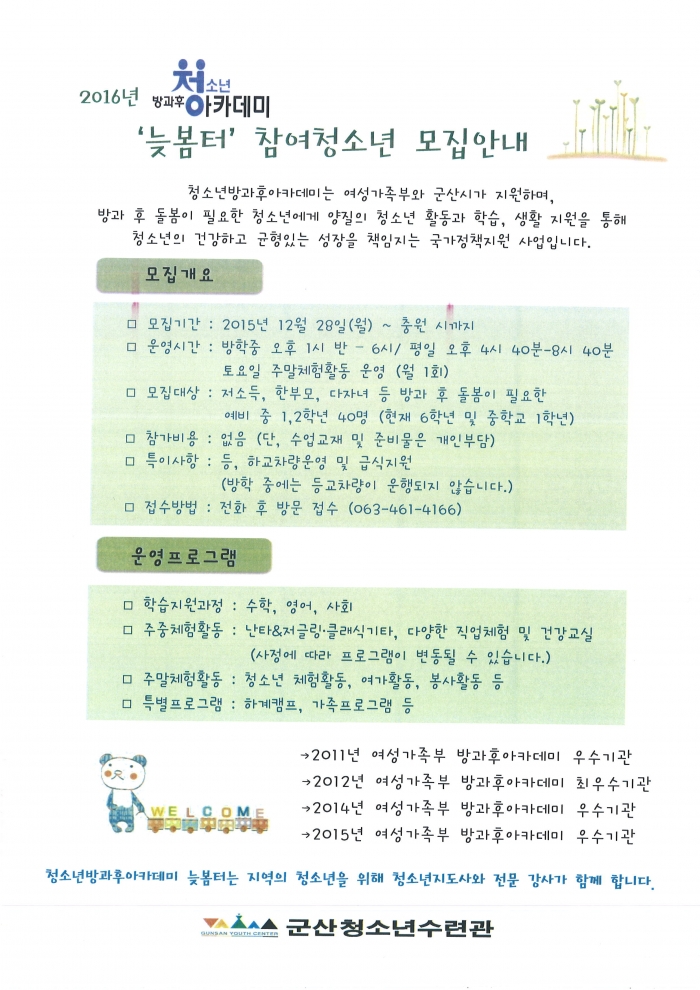 2016년 방과후 청소년 아카데미
‘늦봄터’ 참여청소년 모집안내
청소년방과후아카데미는 여성가족부와 군산시가 지원하며,
방과 후 돌봄이 필요한 청소년에게 양질의 청소년 활동과 학습, 생활 지원을 통해
청소년의 건강하고 균형있는 성장을 책임지는 국가정책지원 사업입니다.
모집개요
□ 모집기간 : 2015년 12월 28일(월) ~ 충원 시까지
□ 운영시간 : 방학중 오후 1시 반 - 6시/ 평일 오후 4시 40분-8시 40분
토요일 주말체험활동 운영 (월 1회)
□ 모집대상 : 저소득, 한부모, 다자녀 등 방과 후 돌봄이 필요한
예비 중 1,2학년 40명 (현재 6학년 및 중학교 1학년)
□ 참가비용 : 없음 (단, 수업교재 및 준비물은 개인부담)
□ 특이사항 : 등, 하교차량운영 및 급식지원
(방학 중에는 등교차량이 운행되지 않습니다.)
□ 접수방법 : 전화 후 방문 접수 (063-461-4166)
운영프로그램
□ 학습지원과정 : 수학, 영어, 사회
□ 주중체험활동 : 난타&저글링·클래식기타, 다양한 직업체험 및 건강교실
(사정에 따라 프로그램이 변동될 수 있습니다.)
□ 주말체험활동 : 청소년 체험활동, 여가활동, 봉사활동 등
□ 특별프로그램 : 하계캠프, 가족프로그램 등
→2011년 여성가족부 방과후아카데미 우수기관
→2012년 여성가족부 방과후아카데미 최우수기관
→2014년 여성가족부 방과후아카데미 우수기관
→2015년 여성가족부 방과후아카데미 우수기관
WELCOME
청소년방과후아카데미 늦봄터는 지역의 청소년을 위해 청소년지도사와 전문 강사가 함께 합니다.
GUNSAN YOUTH CENTER 군산청소년수련관